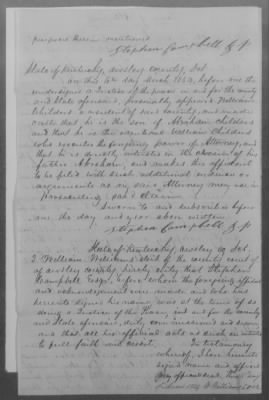 purposes therein mentioned
Stephen Campbell J P
State of Kentucky, Owsley County, Sct.
On this 6th day March 1854, before me the
undersigned a Justice of the peace in and for the county
and State aforesaid, personally appeared William
Childers a resident of said County, and made
oath that he is the son of Abraham Childers
and that he is the identical William Childers
who executed the foregoing power of Attorney, and
that he is directly interested in the claim of his
father Abraham, and makes this affidavit
to be filed with such additional evidence or
arguments as my said Attorney may use in
prosecuting said claim
Sworn to and subscribed before
me the day and year above written
Stephen Campbell J P
State of Kentucky, Owsley Co Sct.
I William Williams clerk of the county court of
of Owsley county, hereby certify that Stephen
Campbell Esqr, before whom the foregoing affidavit
and acknowledgement were made and who has
hereunto signed his name, was at the time of so
doing a Justice of the Peace, in and for the county
and State aforesaid, duly commissioned and sworn
and that all his official acts as such are entitled
to full faith and credit. In testimony
whereof, I have hereunto
signed my name and affixed
my official seal